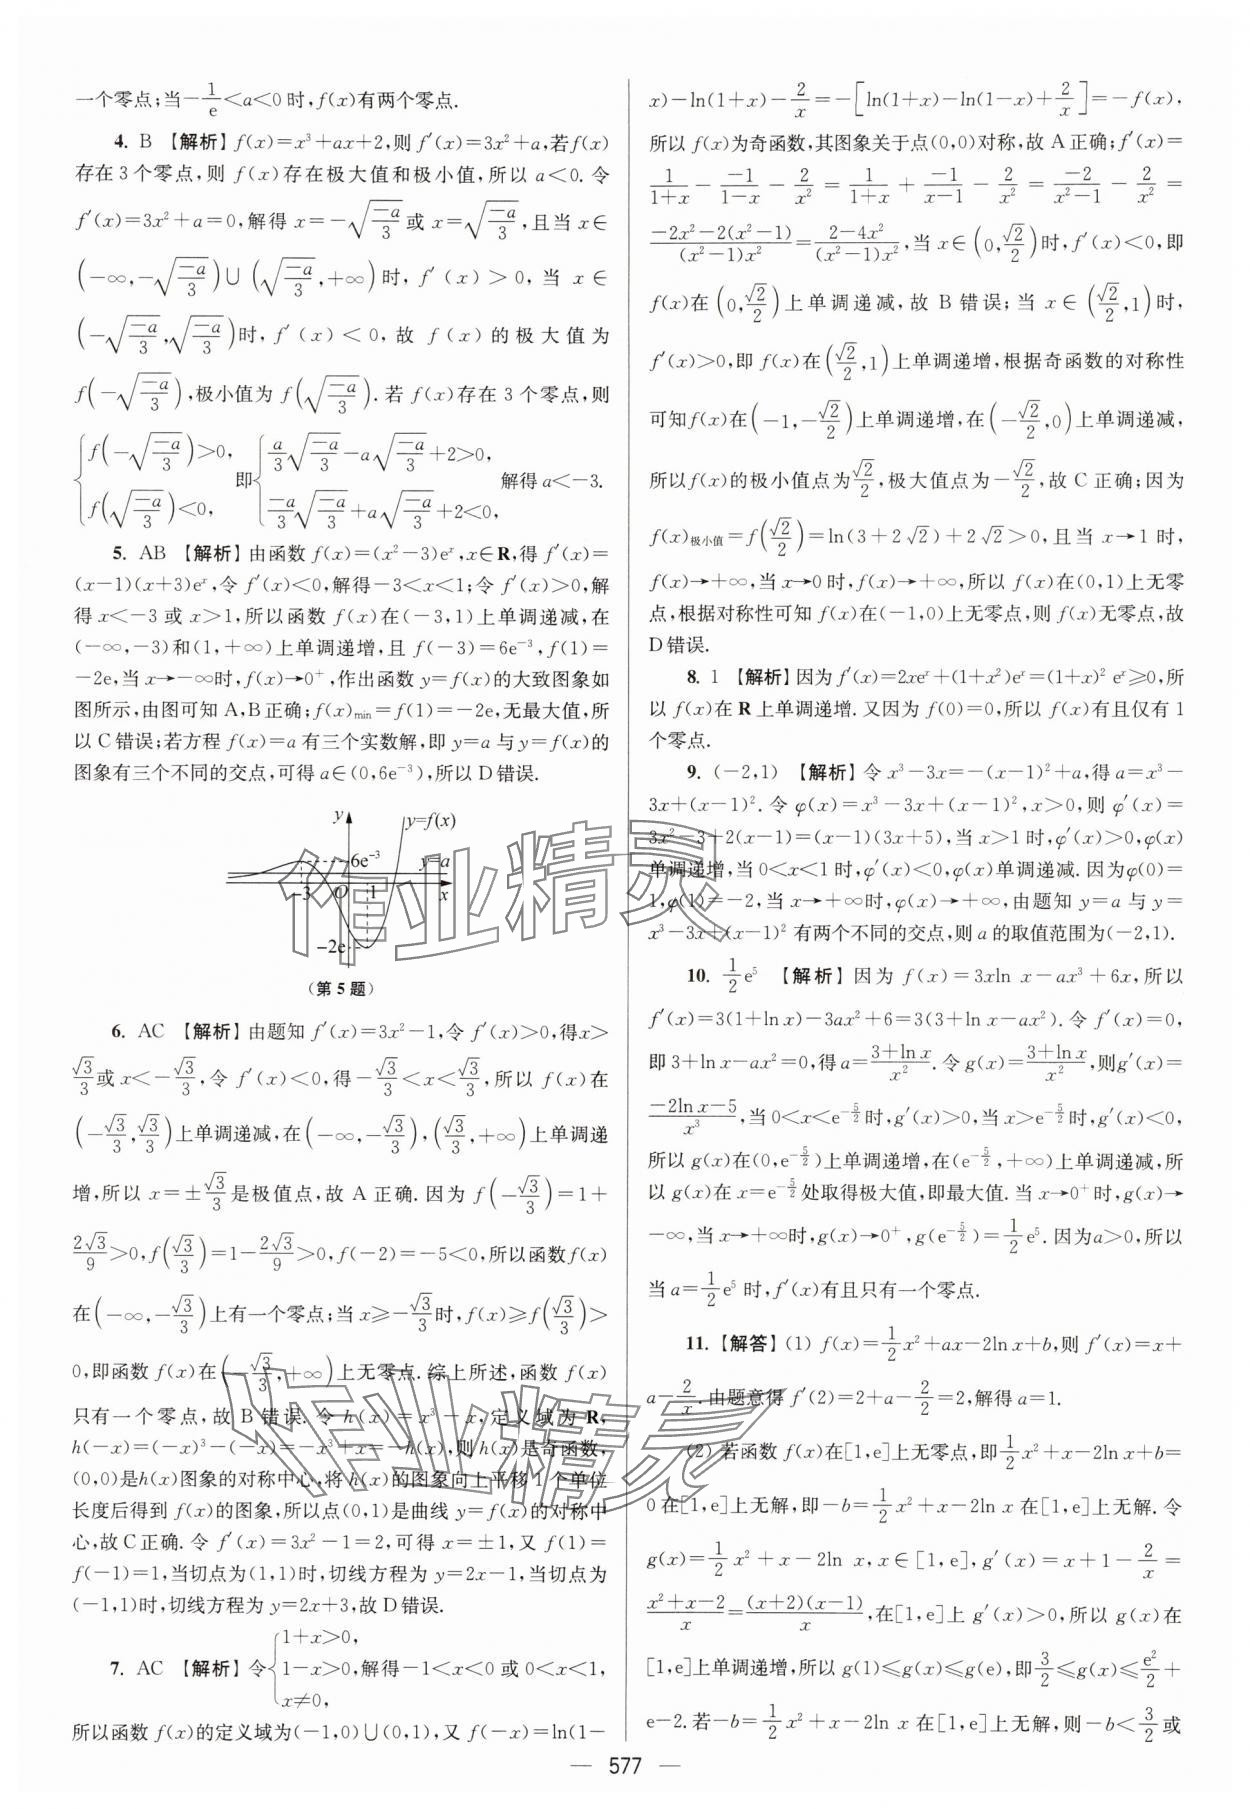 一个零点;当-1/e<a<0时,f(x)有两个零点.
4. B 【解析】f(x)=x³+ax+2,则f′(x)=3x²+a,若f(x)
存在3个零点,则f(x)存在极大值和极小值,所以a<0.令
f′(x)=3x²+a=0,解得x=-√(-a/3)或x=√(-a/3),且当x∈
(-∞,-√(-a/3))∪(√(-a/3),+∞)时,f′(x)>0,当x∈
(-√(-a/3),√(-a/3))时,f′(x)<0,故f(x)的极大值为
f(-√(-a/3)),极小值为f(√(-a/3)).若f(x)存在3个零点,则
{f(-√(-a/3))>0, f(√(-a/3))<0, 即{a/3√(-a/3)-a√(-a/3)+2>0, -a/3√(-a/3)+a√(-a/3)+2<0, 解得a<-3.
5. AB 【解析】由函数f(x)=(x²-3)eˣ,x∈R,得f′(x)=
(x-1)(x+3)eˣ,令f′(x)<0,解得-3<x<1;令f′(x)>0,解
得x<-3或x>1,所以函数f(x)在(-3,1)上单调递减,在
(-∞,-3)和(1,+∞)上单调递增,且f(-3)=6e⁻³,f(1)=
-2e,当x→-∞时,f(x)→0⁺,作出函数y=f(x)的大致图象如
图所示,由图可知A,B正确;f(x)min=f(1)=-2e,无最大值,所
以C错误;若方程f(x)=a有三个实数解,即y=a与y=f(x)的
图象有三个不同的交点,可得a∈(0,6e⁻³),所以D错误.
y
y=f(x)
6e⁻³
y=a
-3
O
1
x
-2e
(第5题)
6. AC 【解析】由题知f′(x)=3x²-1,令f′(x)>0,得x>
√3/3或x<-√3/3,令f′(x)<0,得-√3/3<x<√3/3,所以f(x)在
(-√3/3,√3/3)上单调递减,在(-∞,-√3/3),(√3/3,+∞)上单调递
增,所以x=±√3/3是极值点,故A正确.因为f(-√3/3)=1+
2√3/9>0,f(√3/3)=1-2√3/9>0,f(-2)=-5<0,所以函数f(x)
在(-∞,-√3/3)上有一个零点;当x≥-√3/3时,f(x)≥f(√3/3)>
0,即函数f(x)在(-√3/3,+∞)上无零点.综上所述,函数f(x)
只有一个零点,故B错误.令h(x)=x³-x,定义域为R,
h(-x)=(-x)³-(-x)=-x³+x=-h(x),则h(x)是奇函数,
(0,0)是h(x)图象的对称中心,将h(x)的图象向上平移1个单位
长度后得到f(x)的图象,所以点(0,1)是曲线y=f(x)的对称中
心,故C正确.令f′(x)=3x²-1=2,可得x=±1,又f(1)=
f(-1)=1,当切点为(1,1)时,切线方程为y=2x-1,当切点为
(-1,1)时,切线方程为y=2x+3,故D错误.
7. AC 【解析】令{1+x>0, 1-x>0, x≠0, 解得-1<x<0或0<x<1,
所以函数f(x)的定义域为(-1,0)∪(0,1),又f(-x)=ln(1-
x)-ln(1+x)-2/x=-[ln(1+x)-ln(1-x)+2/x]=-f(x),
所以f(x)为奇函数,其图象关于点(0,0)对称,故A正确;f′(x)=
1/(1+x)-(-1)/(1-x)-2/x²=1/(1+x)+(-1)/(x-1)-2/x²=-2/(x²-1)-2/x²=
(-2x²-2(x²-1))/((x²-1)x²)=(2-4x²)/((x²-1)x²),当x∈(0,√2/2)时,f′(x)<0,即
f(x)在(0,√2/2)上单调递减,故B错误;当x∈(√2/2,1)时,
f′(x)>0,即f(x)在(√2/2,1)上单调递增,根据奇函数的对称性
可知f(x)在(-1,-√2/2)上单调递增,在(-√2/2,0)上单调递减,
所以f(x)的极小值点为√2/2,极大值点为-√2/2,故C正确;因为
f(x)极小值=f(√2/2)=ln(3+2√2)+2√2>0,且当x→1时,
f(x)→+∞,当x→0时,f(x)→+∞,所以f(x)在(0,1)上无零
点,根据对称性可知f(x)在(-1,0)上无零点,则f(x)无零点,故
D错误.
8. 1 【解析】因为f′(x)=2xeˣ+(1+x²)eˣ=(1+x)²eˣ≥0,所
以f(x)在R上单调递增.又因为f(0)=0,所以f(x)有且仅有1
个零点.
9. (-2,1) 【解析】令x³-3x=-(x-1)²+a,得a=x³-
3x+(x-1)².令φ(x)=x³-3x+(x-1)²,x>0,则φ′(x)=
3x²-3+2(x-1)=(x-1)(3x+5),当x>1时,φ′(x)>0,φ(x)
单调递增,当0<x<1时,φ′(x)<0,φ(x)单调递减.因为φ(0)=
1,φ(1)=-2,当x→+∞时,φ(x)→+∞,由题知y=a与y=
x³-3x+(x-1)²有两个不同的交点,则a的取值范围为(-2,1).
10. 1/2e⁵ 【解析】因为f(x)=3xln x-ax³+6x,所以
f′(x)=3(1+ln x)-3ax²+6=3(3+ln x-ax²).令f′(x)=0,
即3+ln x-ax²=0,得a=(3+ln x)/x².令g(x)=(3+ln x)/x²,则g′(x)=
(-2ln x-5)/x³,当0<x<e^(-5/2)时,g′(x)>0,当x>e^(-5/2)时,g′(x)<0,
所以g(x)在(0,e^(-5/2))上单调递增,在(e^(-5/2),+∞)上单调递减,所
以g(x)在x=e^(-5/2)处取得极大值,即最大值.当x→0⁺时,g(x)→
-∞,当x→+∞时,g(x)→0⁺,g(e^(-5/2))=1/2e⁵.因为a>0,所以
当a=1/2e⁵时,f′(x)有且只有一个零点.
11.【解答】(1) f(x)=1/2x²+ax-2ln x+b,则f′(x)=x+
a-2/x.由题意得f′(2)=2+a-2/2=2,解得a=1.
(2) 若函数f(x)在[1,e]上无零点,即1/2x²+x-2ln x+b=
0在[1,e]上无解,即-b=1/2x²+x-2ln x在[1,e]上无解.令
g(x)=1/2x²+x-2ln x,x∈[1,e],g′(x)=x+1-2/x=
(x²+x-2)/x=(x+2)(x-1)/x,在[1,e]上g′(x)>0,所以g(x)在
[1,e]上单调递增,所以g(1)≤g(x)≤g(e),即3/2≤g(x)≤e²/2+
e-2.若-b=1/2x²+x-2ln x在[1,e]上无解,则-b<3/2或
— 577 —
作业精灵
作业精灵